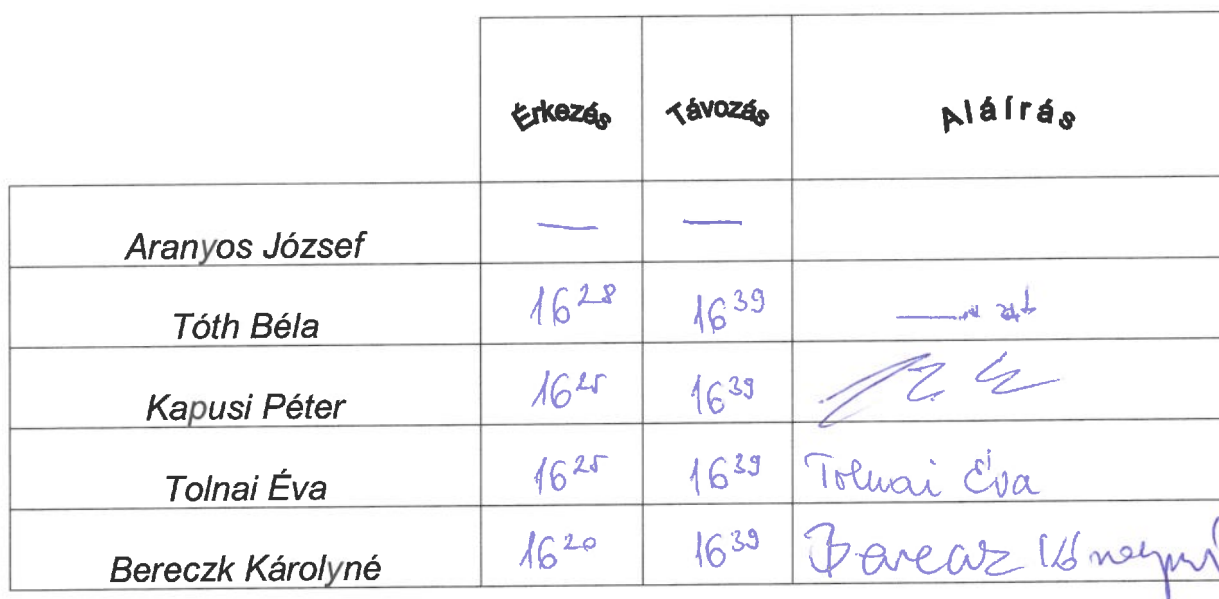 Érkezés Távozás Aláírás
Aranyos József — —
Tóth Béla 16²⁸ 16³⁹
Kapusi Péter 16²⁵ 16³⁹
Tolnai Éva 16²⁵ 16³⁹ Tolnai Éva
Bereczk Károlyné 16²⁰ 16³⁹